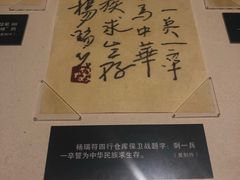 一兵一卒
为中华
族求生存
杨瑞符
杨瑞符四行仓库保卫战题字：剩一兵
一卒誓为中华民族求生存。
（复制件）